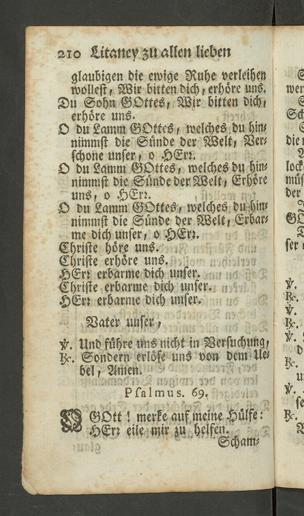 210 Litaney zu allen lieben
glaubigen die ewige Ruhe verleihen
wollest, Wir bitten dich, erhöre uns.
Du Sohn GOttes, Wir bitten dich,
erhöre uns.
O du Lamm GOttes, welches du hin-
nimmst die Sünde der Welt, Ver-
schone unser, o HErr.
O du Lamm GOttes, welches du hin-
nimmst die Sünde der Welt, Erhöre
uns, o HErr.
O du Lamm GOttes, welches du hin-
nimmst die Sünde der Welt, Erbar-
me dich unser, o HErr.
Christe höre uns.
Christe erhöre uns.
HErr erbarme dich unser.
Christe erbarme dich unser.
HErr erbarme dich unser.
Vater unser,
℣. Und führe uns nicht in Versuchung,
℟. Sondern erlöse uns von dem Ue-
bel, Amen.
Psalmus. 69.
O GOtt! merke auf meine Hülfe:
HErr eile mir zu helfen.
Scham-